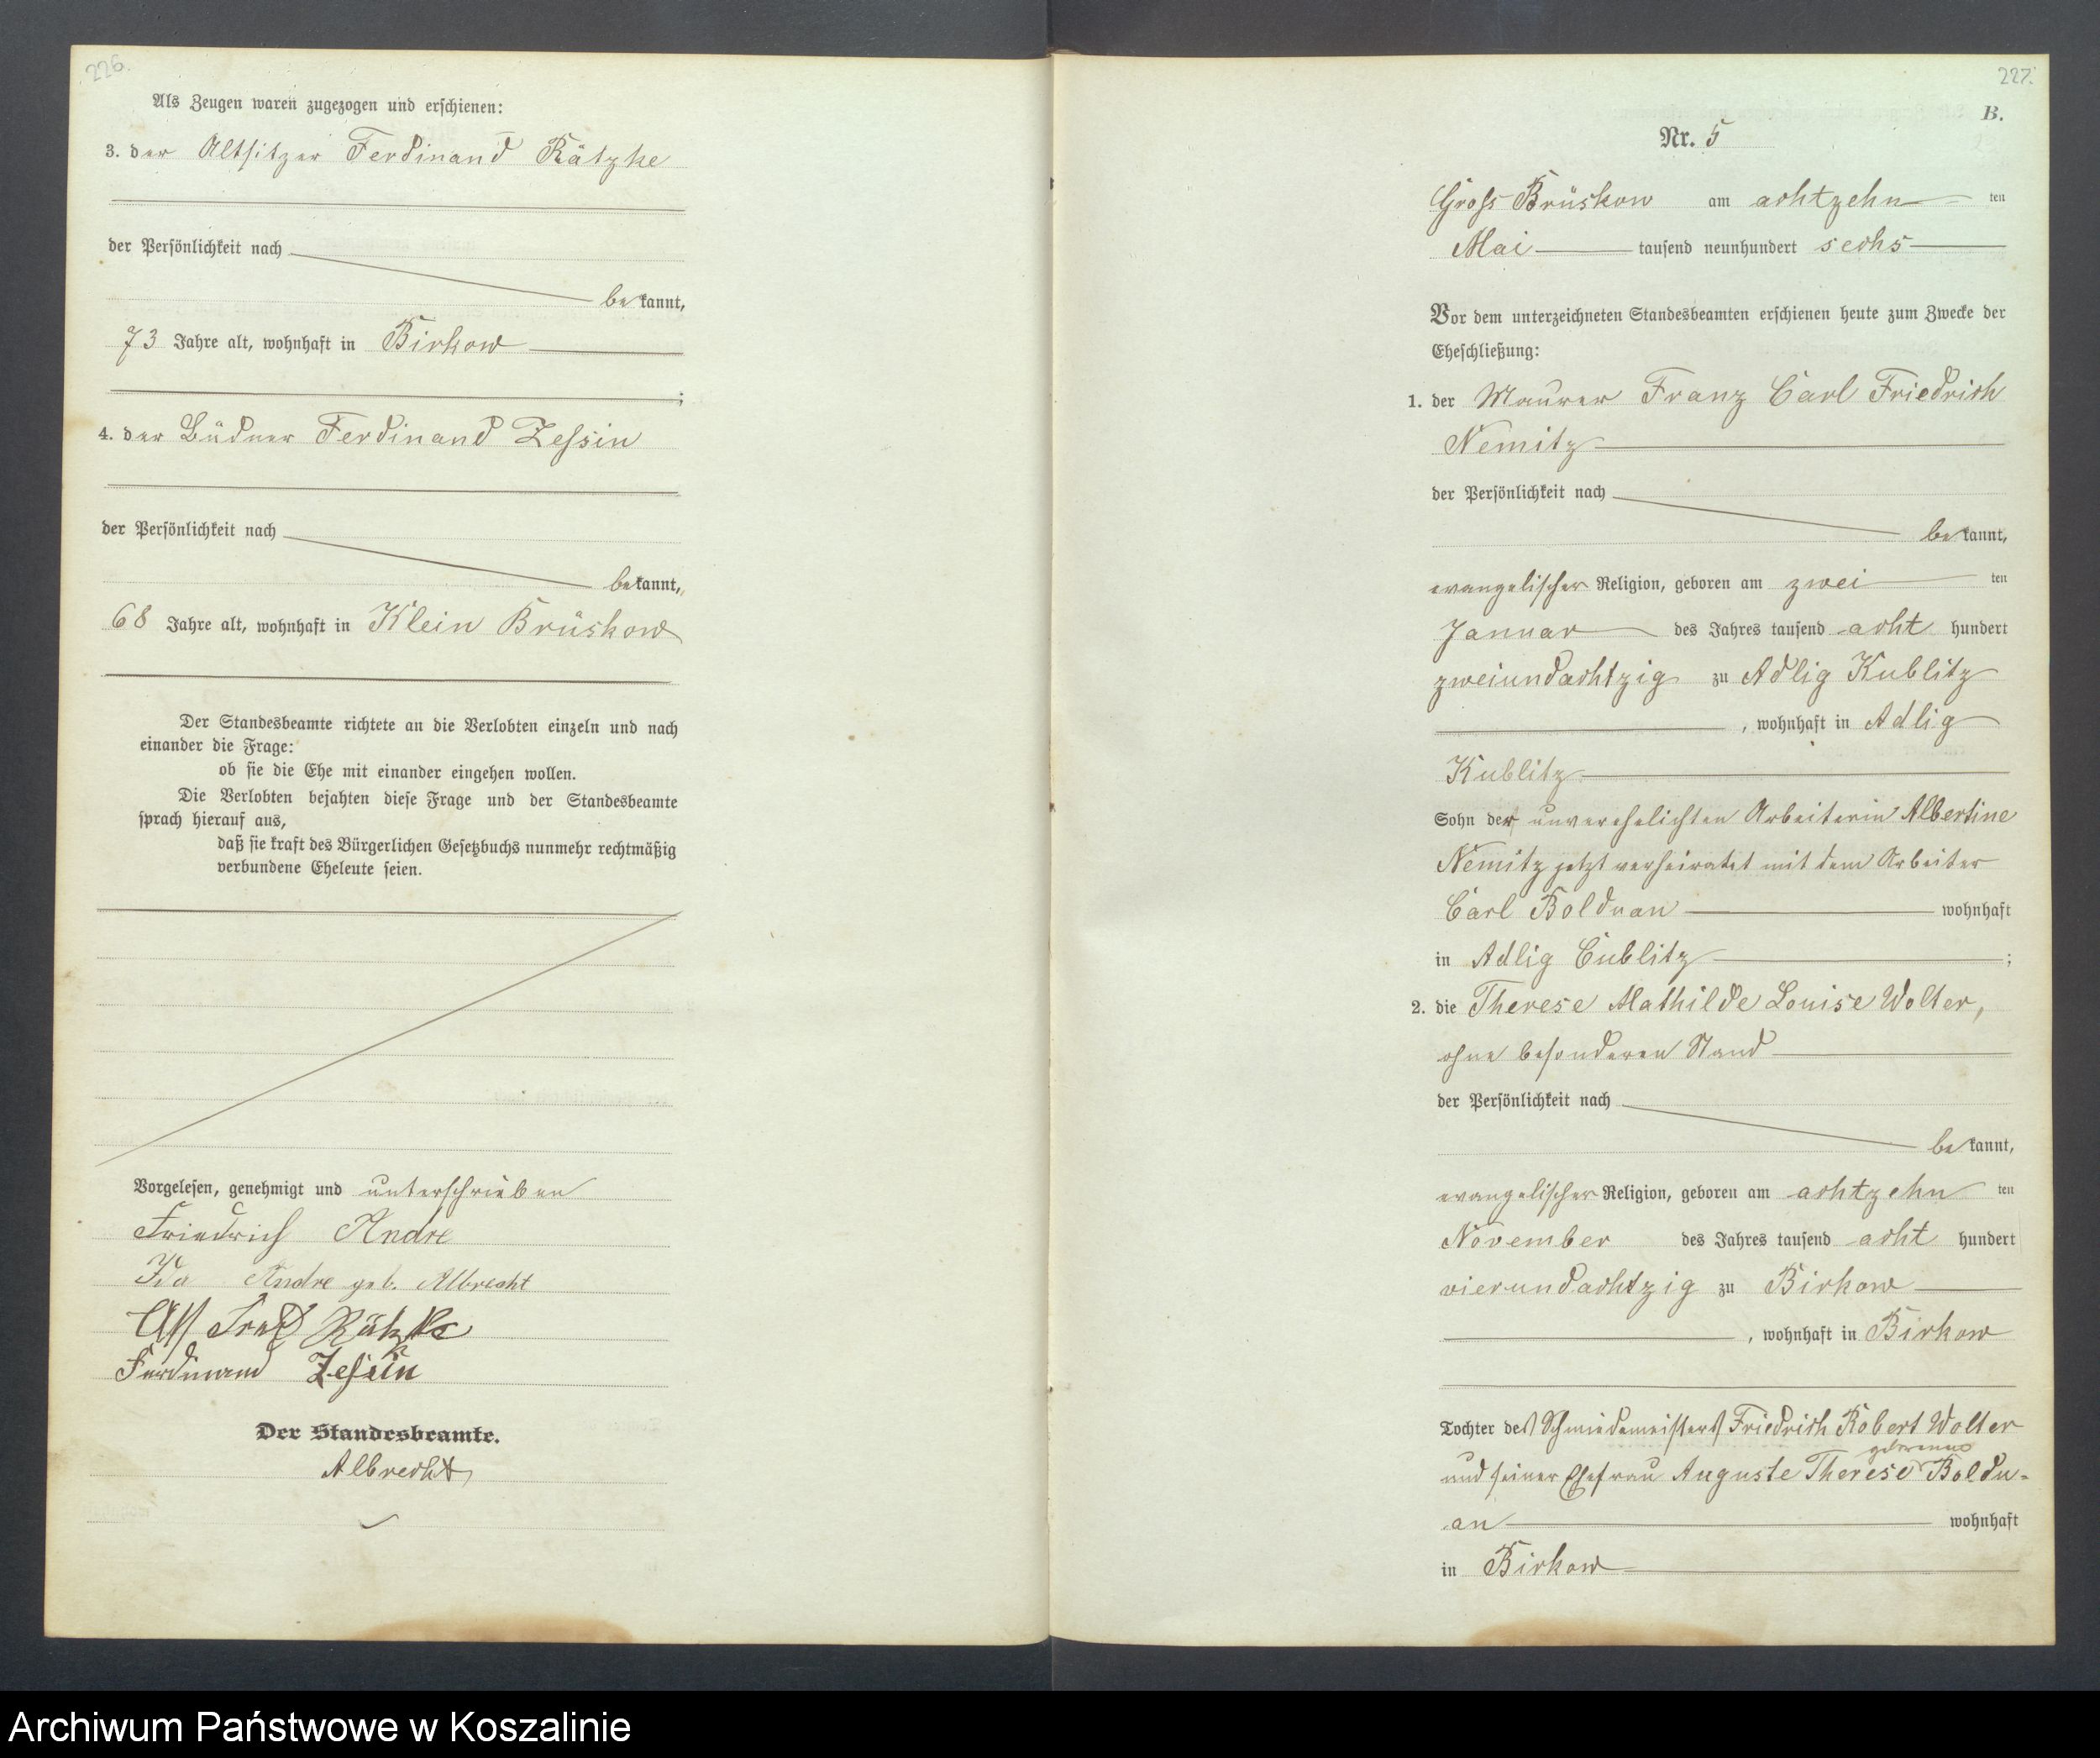 226.
Als Zeugen waren zugezogen und erschienen:
3. der Altsitzer Ferdinand Rätzke
der Persönlichkeit nach
bekannt,
73 Jahre alt, wohnhaft in Birkow
;
4. der Büdner Ferdinand Zessin
der Persönlichkeit nach
bekannt,
68 Jahre alt, wohnhaft in Klein Brüskow
Der Standesbeamte richtete an die Verlobten einzeln und nach
einander die Frage:
ob sie die Ehe mit einander eingehen wollen.
Die Verlobten bejahten diese Frage und der Standesbeamte
sprach hierauf aus,
daß sie kraft des Bürgerlichen Gesetzbuchs nunmehr rechtmäßig
verbundene Eheleute seien.
Vorgelesen, genehmigt und unterschrieben
Friedrich Andre
Ida Andre geb. Albrecht
Rätzke
Ferdinand Zessin
Der Standesbeamte.
Albrecht
227.
B.
Nr. 5
Gross Brüskow am achtzehn ten
Mai tausend neunhundert sechs
Vor dem unterzeichneten Standesbeamten erschienen heute zum Zwecke der
Eheschließung:
1. der Maurer Franz Carl Friedrich
Nemitz
der Persönlichkeit nach
bekannt,
evangelischer Religion, geboren am zwei ten
Januar des Jahres tausend acht hundert
zweiundachtzig zu Adlig Kublitz
, wohnhaft in Adlig
Kublitz
Sohn der unverehelichten Arbeiterin Albertine
Nemitz jetzt verheiratet mit dem Arbeiter
Carl Balduan wohnhaft
in Adlig Cublitz ;
2. die Therese Mathilde Louise Wolter,
ohne besonderen Stand
der Persönlichkeit nach
bekannt,
evangelischer Religion, geboren am achtzehn ten
November des Jahres tausend acht hundert
vierundachtzig zu Birkow
, wohnhaft in Birkow
Tochter des Schmiedemeisters Friedrich Robert Wolter
geborenen
und seiner Ehefrau Auguste Therese Boldu-
an wohnhaft
in Birkow
Archiwum Państwowe w Koszalinie